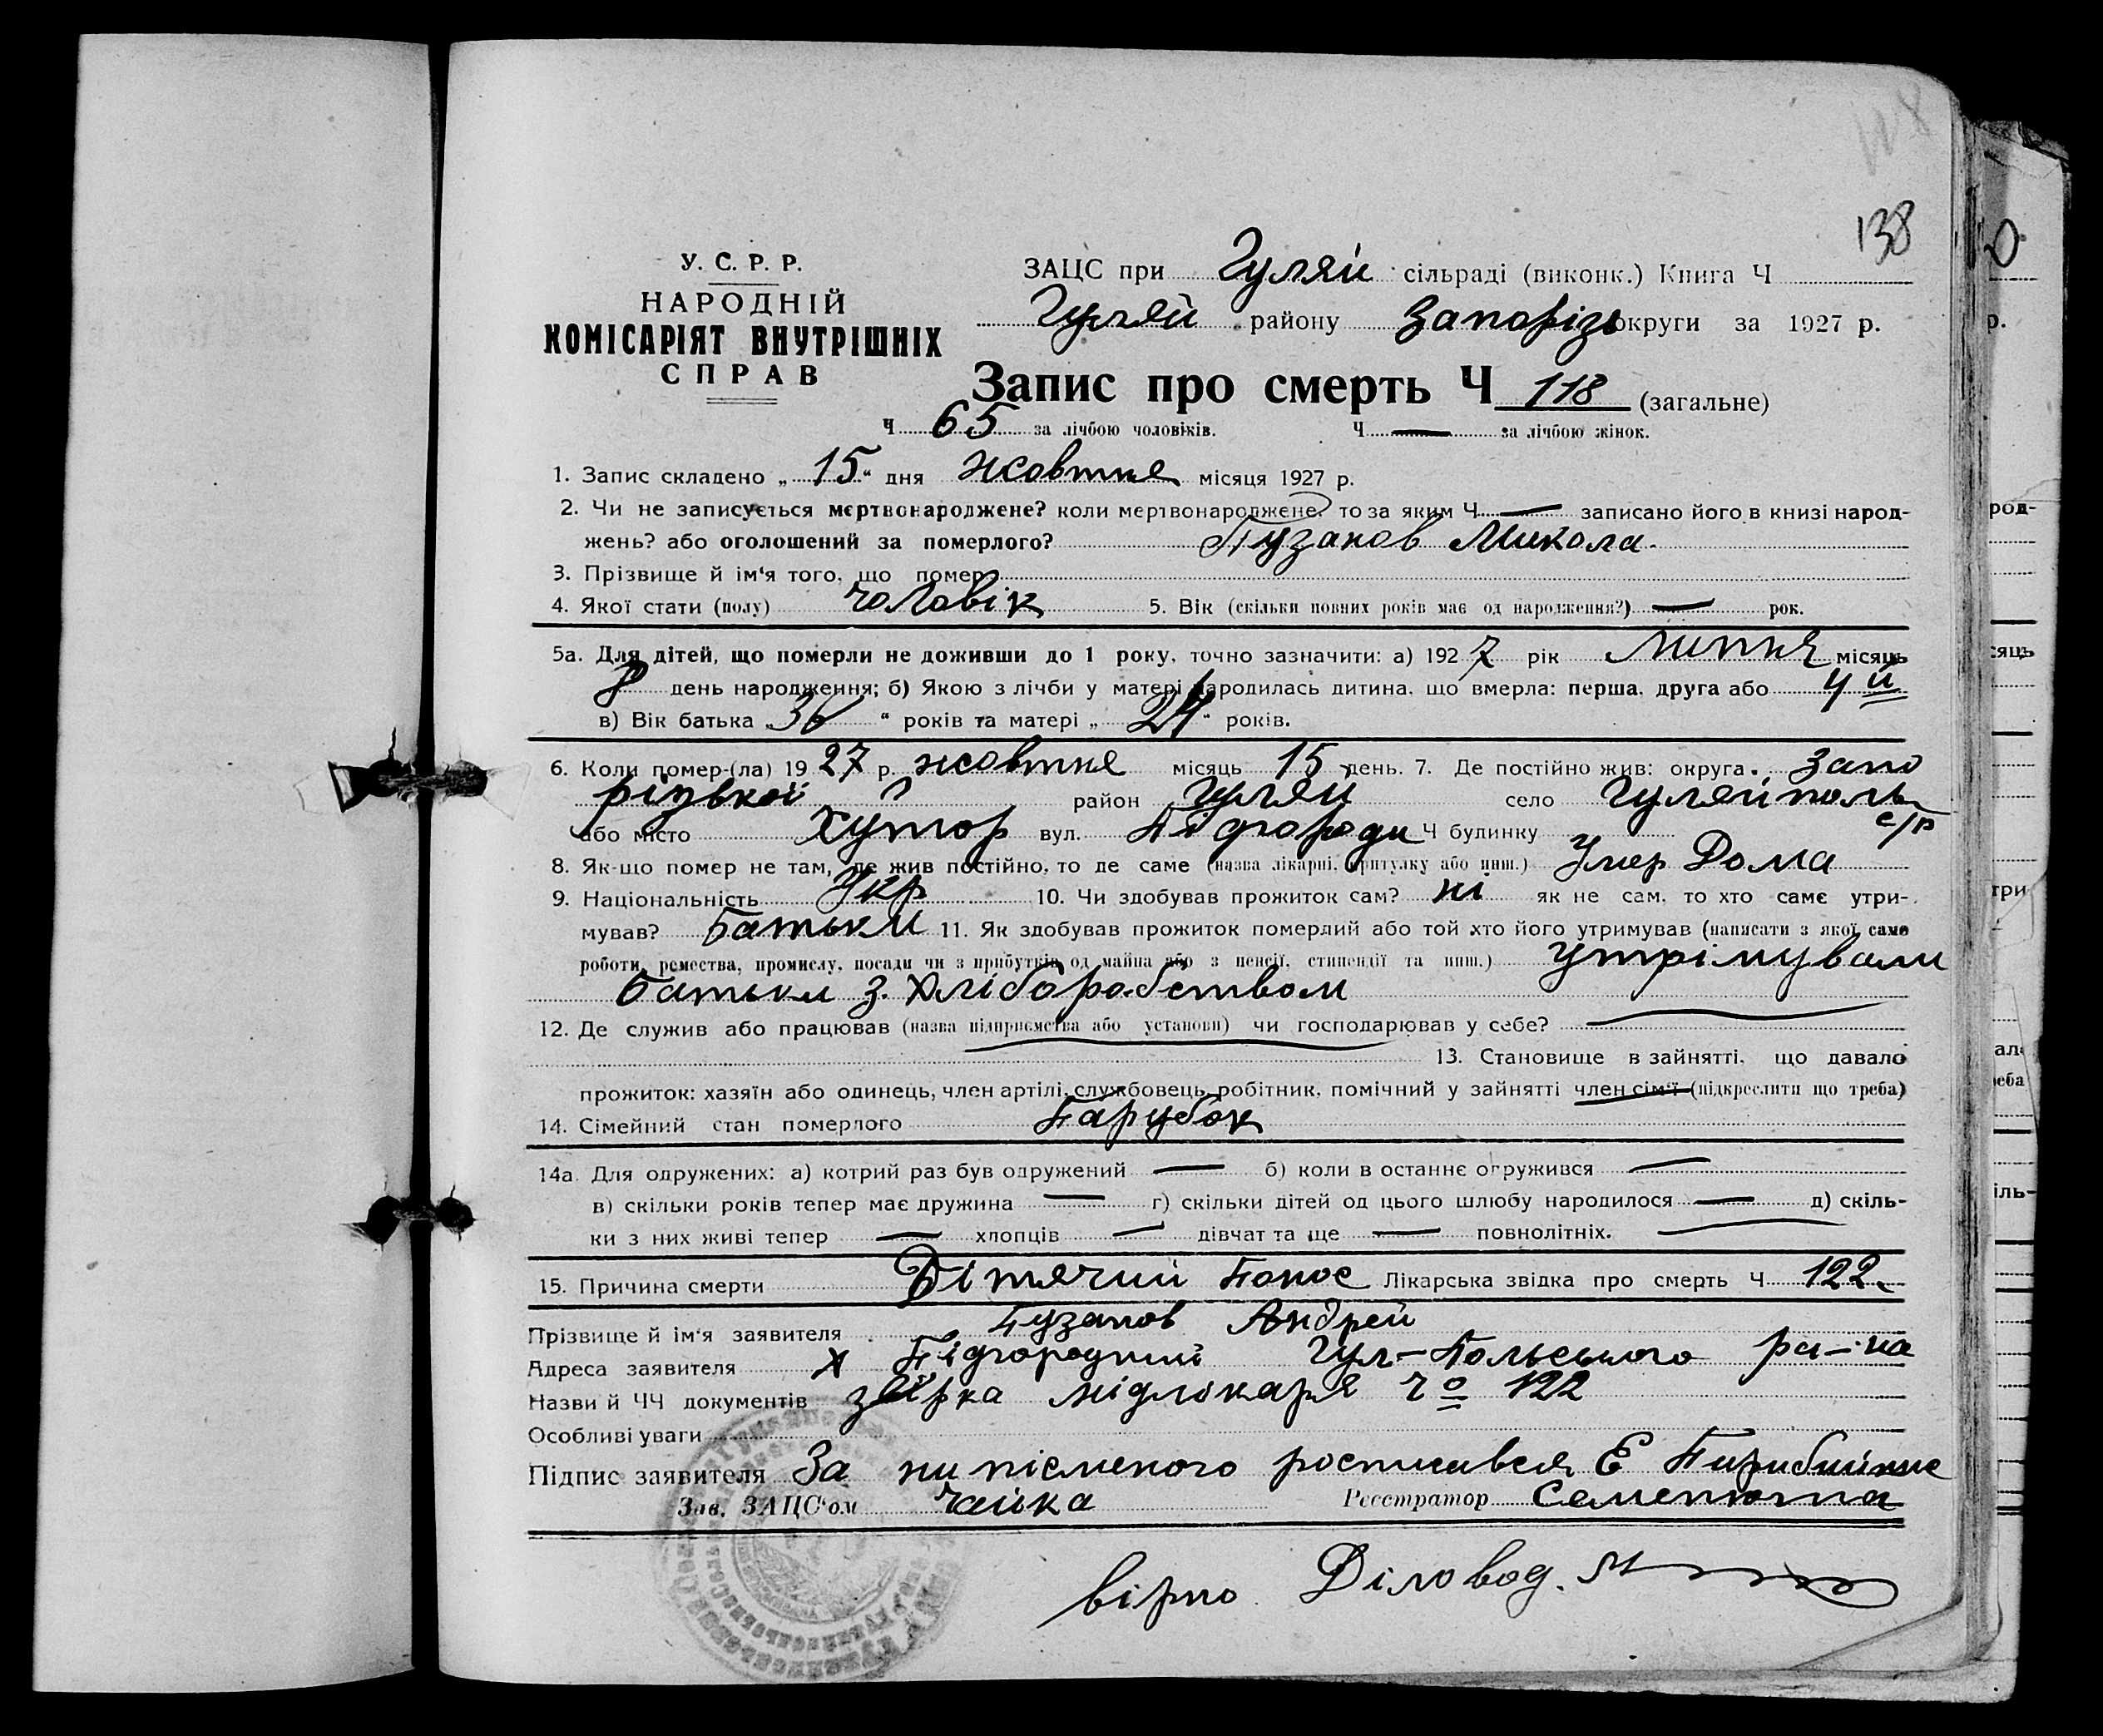 138
У. С. Р. Р.
НАРОДНІЙ
КОМІСАРІЯТ ВНУТРІШНІХ
СПРАВ
ЗАЦС при Гуляй сільраді (виконк.) Книга Ч
Гуляй району Запоріз округи за 1927 р.
Запис про смерть Ч 118 (загальне)
Ч 65 за лічбою чоловіків. Ч — за лічбою жінок.
1. Запис складено „15“ дня жовтня місяця 1927 р.
2. Чи не записується мертвонароджене? коли мертвонароджене, то за яким Ч — записано його в книзі народ-
жень? або оголошений за померлого? Пузанов Микола.
3. Прізвище й ім'я того, що помер
4. Якої стати (полу) чоловік 5. Вік (скільки повних років має од народження?) — рок.
5а. Для дітей, що померли не доживши до 1 року, точно зазначити: а) 1927 рік липня місяць
8 день народження; б) Якою з лічби у матері народилась дитина, що вмерла: перша, друга або 4й
в) Вік батька „36“ років та матері „24“ років.
6. Коли помер-(ла) 1927 р. жовтня місяць 15 день. 7. Де постійно жив: округа. Запо
різької район Гуляй село Гуляйполь
с/р
або місто Хутор вул. Підгороди Ч будинку
8. Як-що помер не там, де жив постійно, то де саме (назва лікарні, притулку або инш.) Умер Дома
9. Національність Укр 10. Чи здобував прожиток сам? ні як не сам, то хто саме утри-
мував? Батьки 11. Як здобував прожиток померлий або той хто його утримував (написати з якої саме
роботи, ремества, промислу, посади чи з прибутків од майна або з пенсії, стипендії та инш.) утрімували
батьки з. Хліборобством
12. Де служив або працював (назва підприємства або установи) чи господарював у себе? —
13. Становище в зайнятті, що давало
прожиток: хазяїн або одинець, член артілі, службовець, робітник, помічний у зайнятті член сім'ї (підкреслити що треба)
14. Сімейний стан померлого Парубок
14а. Для одружених: а) котрий раз був одружений — б) коли в останнє одружився —
в) скільки років тепер має дружина — г) скільки дітей од цього шлюбу народилося — д) скіль-
ки з них живі тепер — хлопців — дівчат та ще — повнолітніх. —
15. Причина смерти Дітячий Понос Лікарська звідка про смерть Ч 122.
Прізвище й ім'я заявителя Пузанов Андрей
Адреса заявителя Х Підгородний Гул-Польського ра-на
Назви й ЧЧ документів звірка підлікаря чо 122
Особливі уваги
Підпис заявителя За ниписменого росписався Е
Зав. ЗАЦС'ом Чайка Реєстратор Семенюта
вірно Діловод.